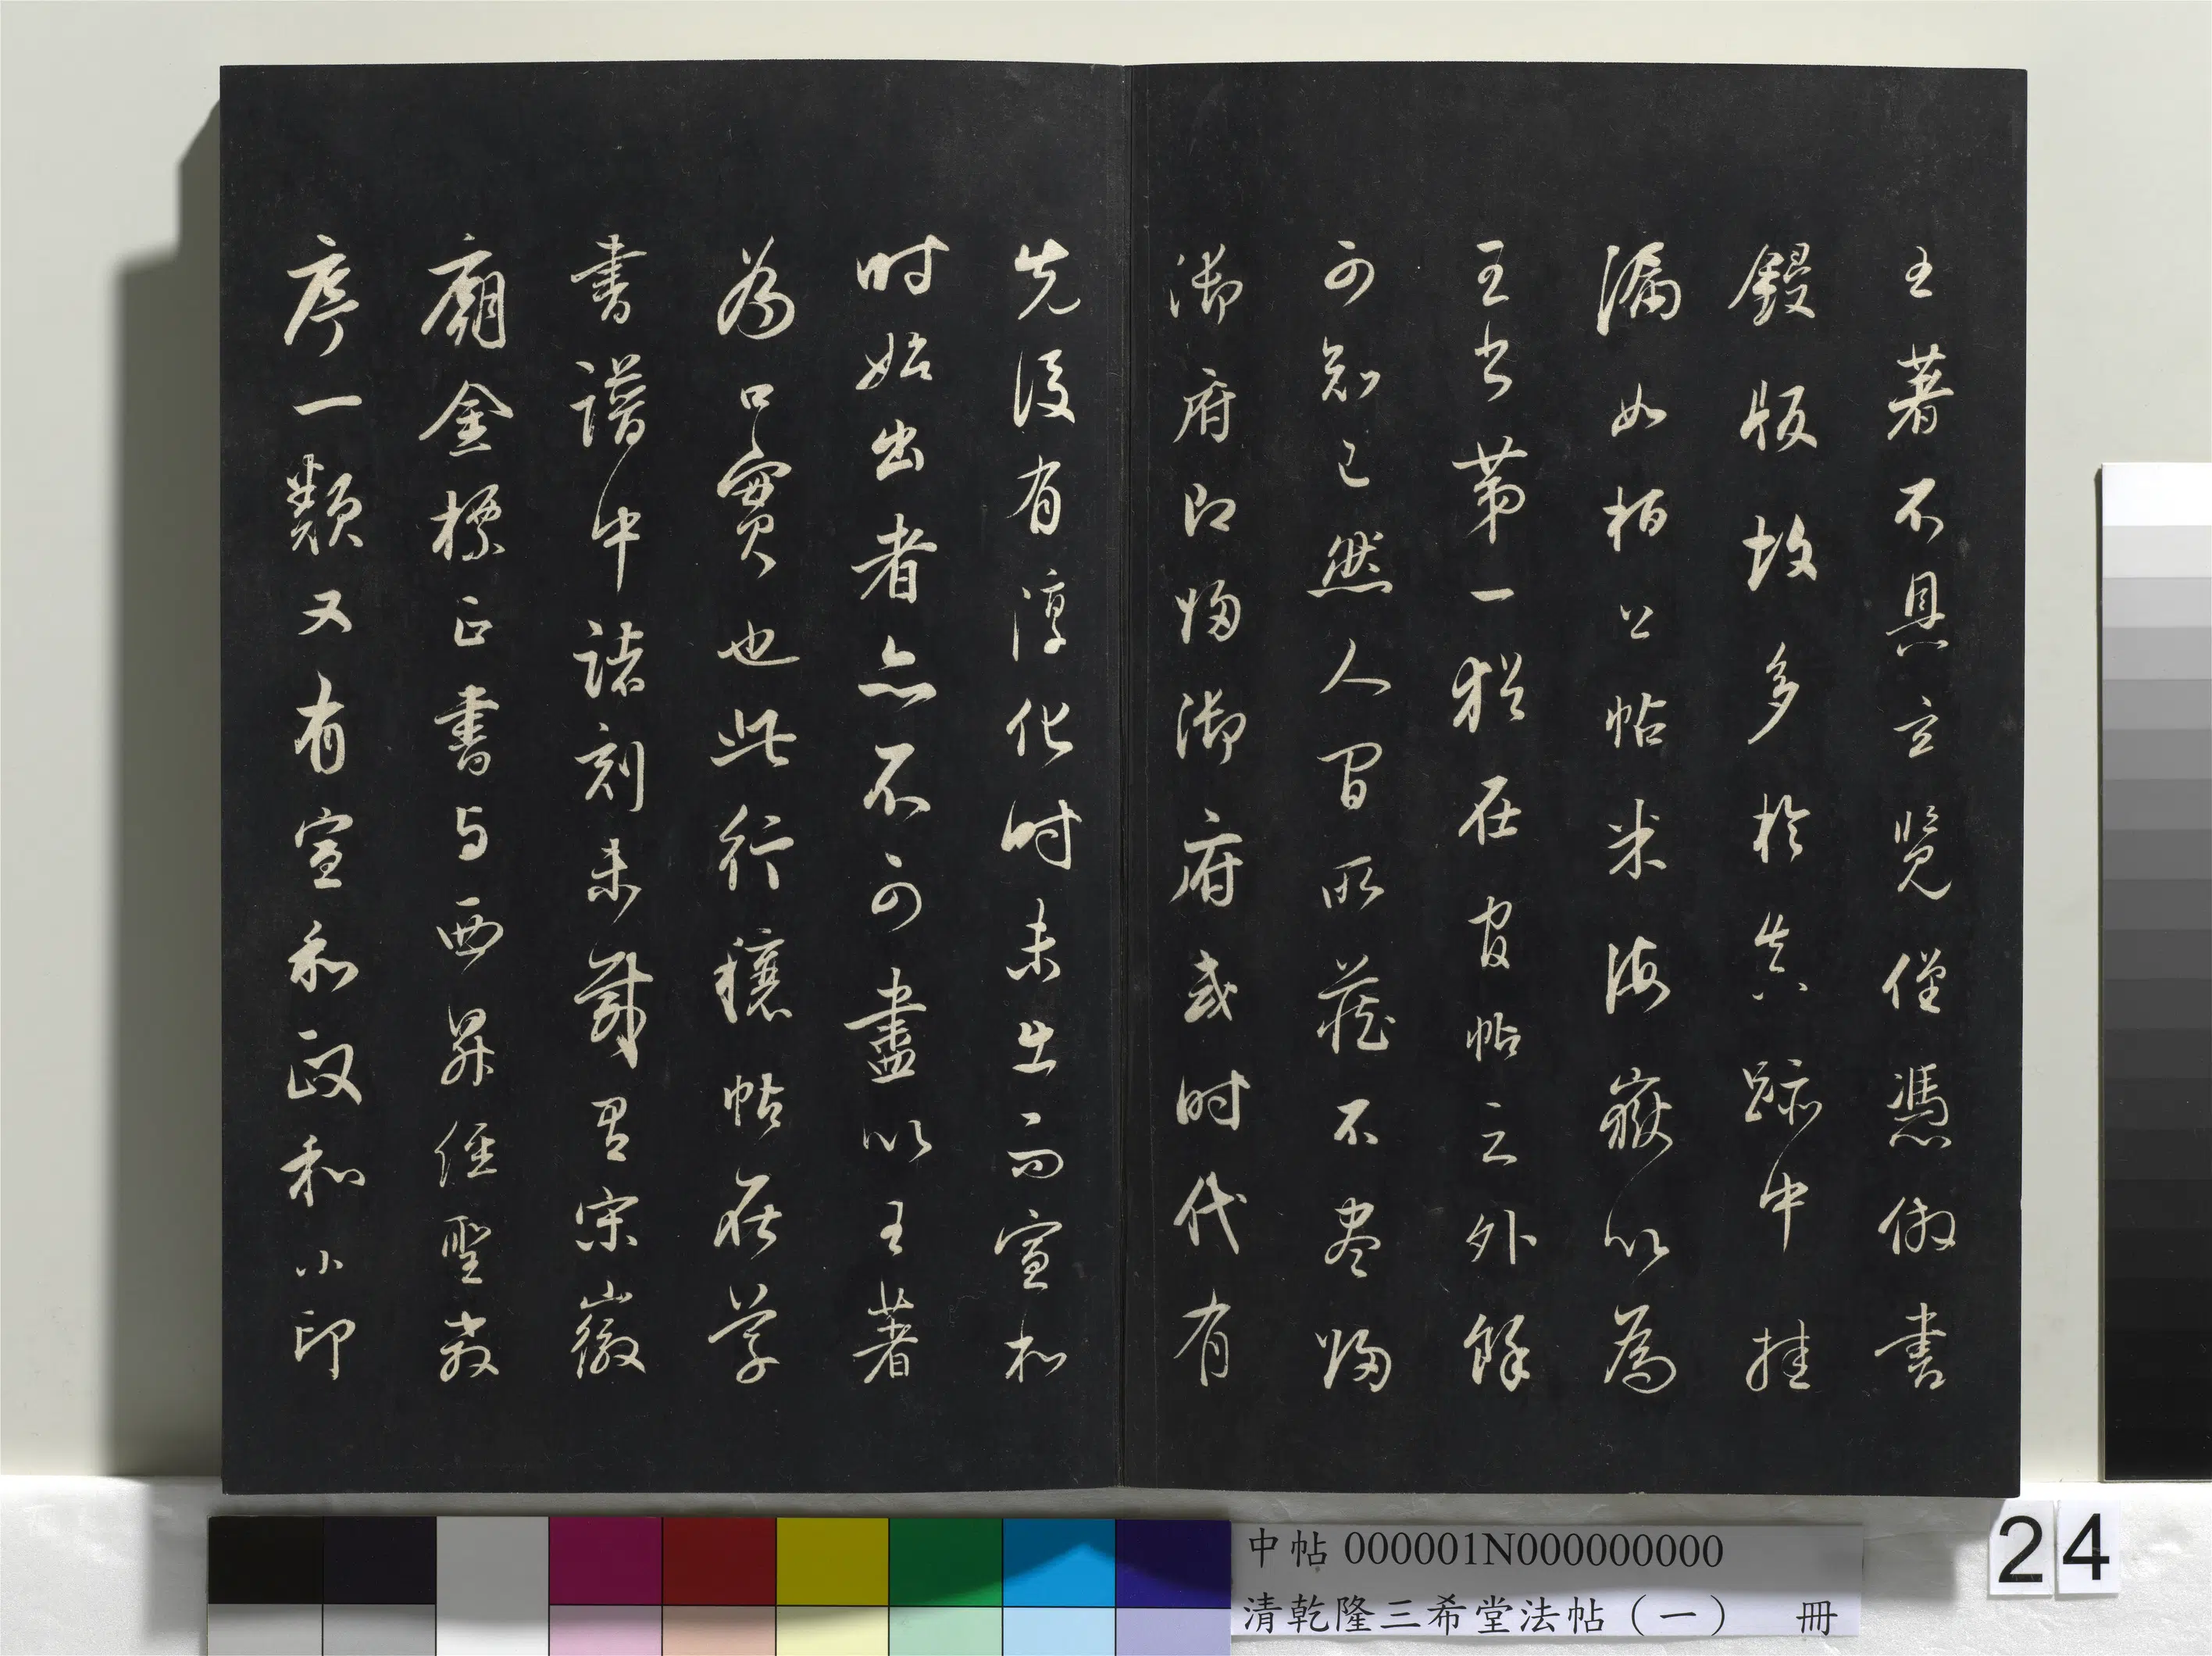 王著不具玄覽僅憑倣書
鋟版故多於真跡中挂
漏如栢公帖米海嶽以為
王書第一猶在官帖之外餘
可知已然人間所藏不盡歸
御府即歸御府或時代有
先後有淳化時未出而宣和
時始出者亦不可盡以王著
為口實也此行穰帖在學
書譜中諸刻未載君宋徽
廟金標正書与西昇經聖教
序一類又有宣和政和小印
中帖 000001N000000000
清乾隆三希堂法帖（一） 冊
24